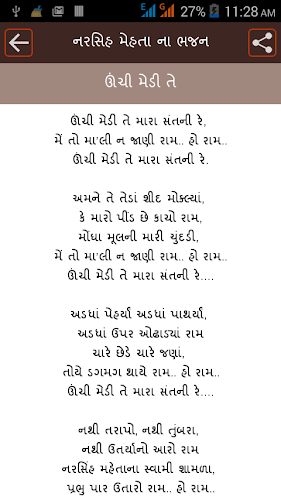 27% 11:28 AM
નરસિંહ મેહતા ના ભજન
ઊંચી મેડી તે
ઊંચી મેડી તે મારા સંતની રે,
મેં તો મા'લી ન જાણી રામ.. હો રામ..
ઊંચી મેડી તે મારા સંતની રે.
અમને તે તેડાં શીદ મોક્લ્યાં,
કે મારો પીંડ છે કાચો રામ,
મોંઘા મૂલની મારી ચુંદડી,
મેં તો મા'લી ન જાણી રામ.. હો રામ..
ઊંચી મેડી તે મારા સંતની રે....
અડધાં પેહર્યાં અડધાં પાથર્યાં,
અડધાં ઉપર ઓઢાડ્યાં રામ
ચારે છેડે ચારે જણાં,
તોયે ડગમગ થાયે રામ.. હો રામ..
ઊંચી મેડી તે મારા સંતની રે....
નથી તરાપો, નથી તુંબરા,
નથી ઉતર્યાનો આરો રામ
નરસિંહ મહેતાના સ્વામી શામળા,
પ્રભુ પાર ઉતારો રામ.. હો રામ..